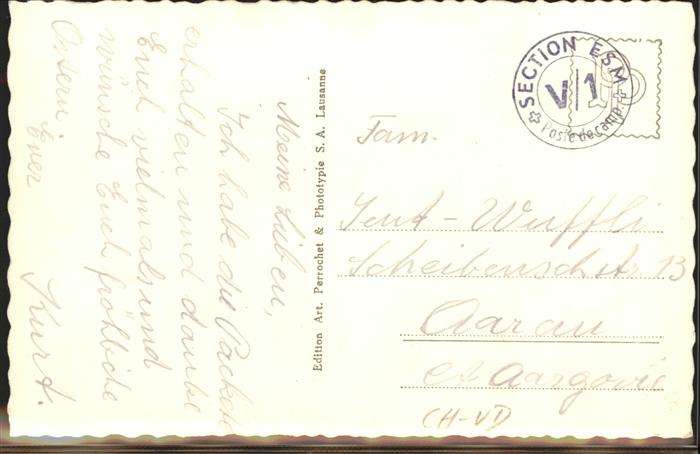 Meine Lieben,
Ich habe die Packete
erhalten und danke
Euch vielmals und
wünsche Euch fröhliche
Ostern Euer
Kurt.
Edition Art. Perrochet & Phototypie S. A. Lausanne
SECTION ESM
V/1
Poste de camp.
Fam.
Jent-Wuffli
Scheibenschstr 13
Aarau
ct Aargovie
(CH-VD